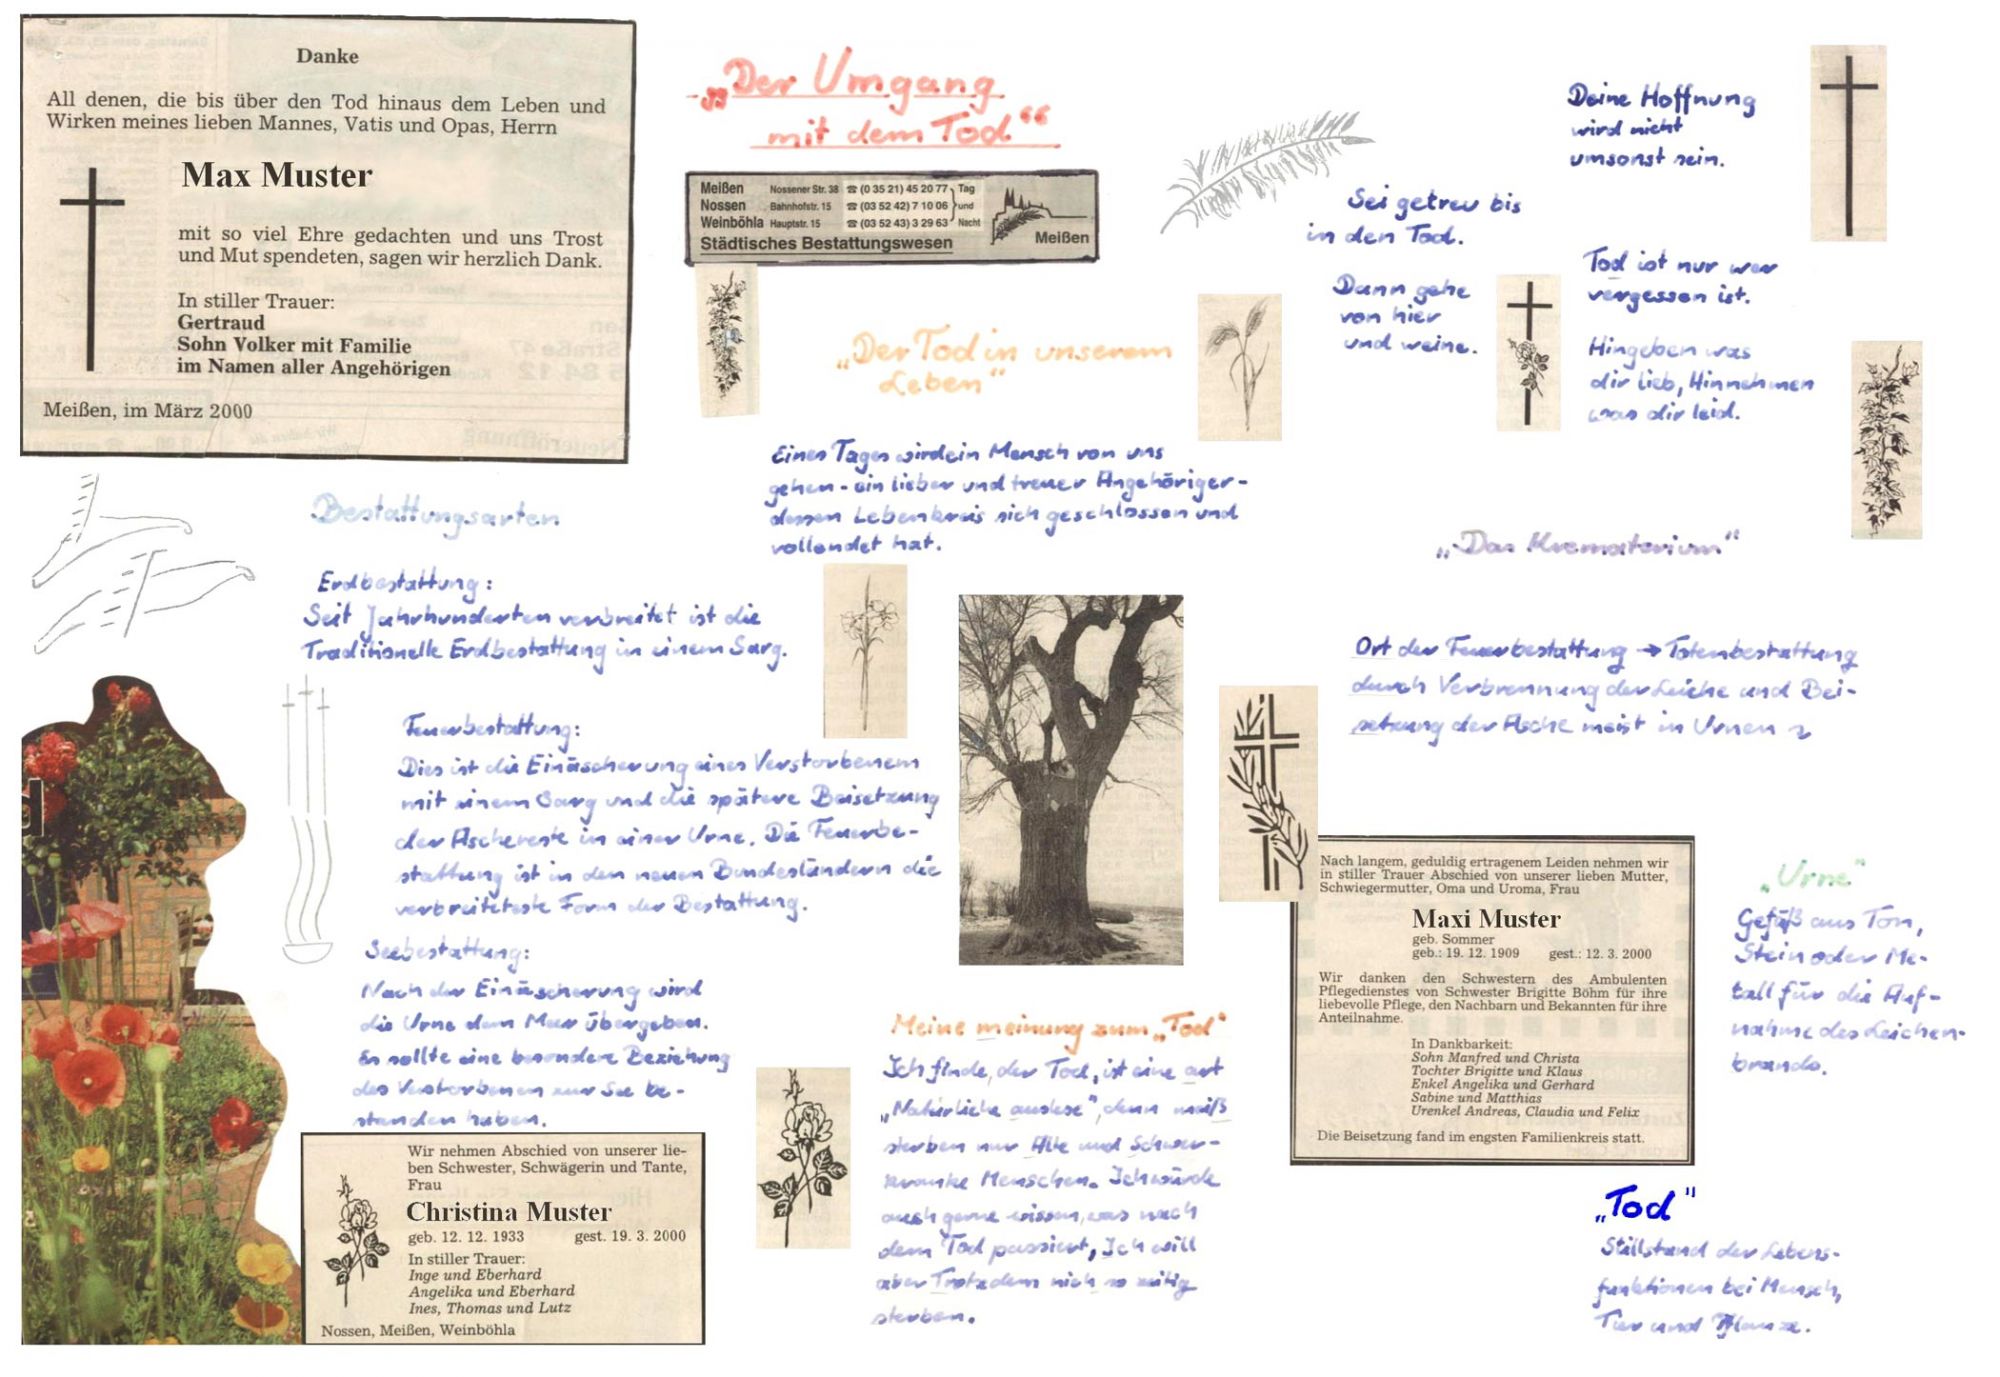 Danke
All denen, die bis über den Tod hinaus dem Leben und
Wirken meines lieben Mannes, Vatis und Opas, Herrn
Max Muster
mit so viel Ehre gedachten und uns Trost
und Mut spendeten, sagen wir herzlich Dank.
In stiller Trauer:
Gertraud
Sohn Volker mit Familie
im Namen aller Angehörigen
Meißen, im März 2000
„Der Umgang
mit dem Tod“
Meißen Nossener Str. 38 ☎ (0 35 21) 45 20 77 Tag
Nossen Bahnhofstr. 15 ☎ (03 52 42) 7 10 06 und
Weinböhla Hauptstr. 15 ☎ (03 52 43) 3 29 63 Nacht
Städtisches Bestattungswesen
Meißen
Deine Hoffnung
wird nicht
umsonst sein.
Sei getreu bis
in den Tod.
Dann gehe
von hier
und weine.
Tod ist nur wer
vergessen ist.
Hingeben was
dir lieb, Hinnehmen
was dir leid.
„Der Tod in unserem
Leben“
Eines Tages wird ein Mensch von uns
gehen - ein lieber und treuer Angehöriger -
dessen Lebenkreis sich geschlossen und
vollendet hat.
Bestattungsarten
Erdbestattung:
Seit Jahrhunderten verbreitet ist die
Traditionelle Erdbestattung in einem Sarg.
Feuerbestattung:
Dies ist die Einäscherung eines Verstorbenem
mit einem Sarg und die spätere Beisetzung
der Aschereste in einer Urne. Die Feuerbe-
stattung ist in den neuen Bundesländern die
verbreiteteste Form der Bestattung.
Seebestattung:
Nach der Einäscherung wird
die Urne dem Meer übergeben.
Es sollte eine besondere Beziehung
des Verstorbenen zur See be-
standen haben.
Wir nehmen Abschied von unserer lie-
ben Schwester, Schwägerin und Tante,
Frau
Christina Muster
geb. 12. 12. 1933 gest. 19. 3. 2000
In stiller Trauer:
Inge und Eberhard
Angelika und Eberhard
Ines, Thomas und Lutz
Nossen, Meißen, Weinböhla
Meine meinung zum „Tod“
Ich finde, der Tod, ist eine art
„Natürliche auslese“, denn meiß
sterben nur Alte und Schwer-
kranke Menschen. Ich würde
auch gerne wissen, was nach
dem Tod passiert, Ich will
aber Trotzdem nich so zeitig
sterben.
„Das Krematorium“
Ort der Feuerbestattung → Totenbestattung
durch Verbrennung der Leiche und Bei-
setzung der Asche meist in Urnen
Nach langem, geduldig ertragenem Leiden nehmen wir
in stiller Trauer Abschied von unserer lieben Mutter,
Schwiegermutter, Oma und Uroma, Frau
Maxi Muster
geb. Sommer
geb.: 19. 12. 1909 gest.: 12. 3. 2000
Wir danken den Schwestern des Ambulenten
Pflegedienstes von Schwester Brigitte Böhm für ihre
liebevolle Pflege, den Nachbarn und Bekannten für ihre
Anteilnahme.
In Dankbarkeit:
Sohn Manfred und Christa
Tochter Brigitte und Klaus
Enkel Angelika und Gerhard
Sabine und Matthias
Urenkel Andreas, Claudia und Felix
Die Beisetzung fand im engsten Familienkreis statt.
„Urne“
Gefäß aus Ton,
Stein oder Me-
tall für die Auf-
nahme des Leichen-
brands.
„Tod“
Stillstand der Lebens-
funktionen bei Mensch,
Tier und Pflanze.